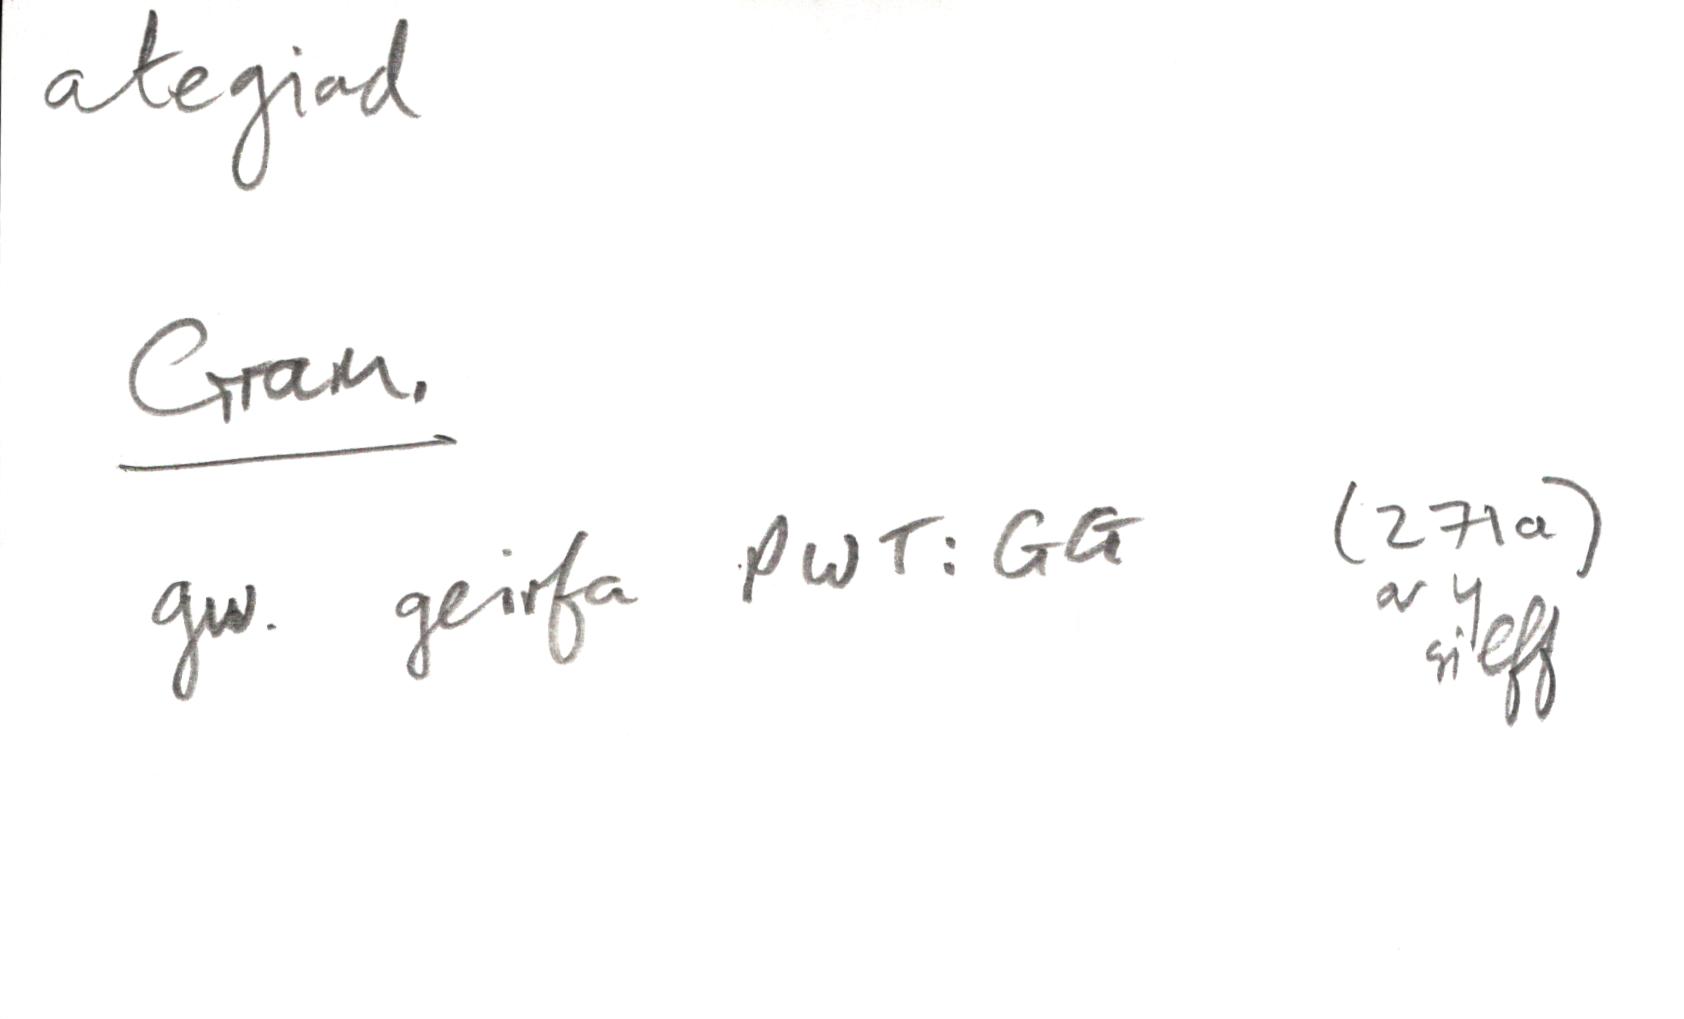 ategiad
Gram.
gw. geirfa PWT: GG (271a)
ar y
silff